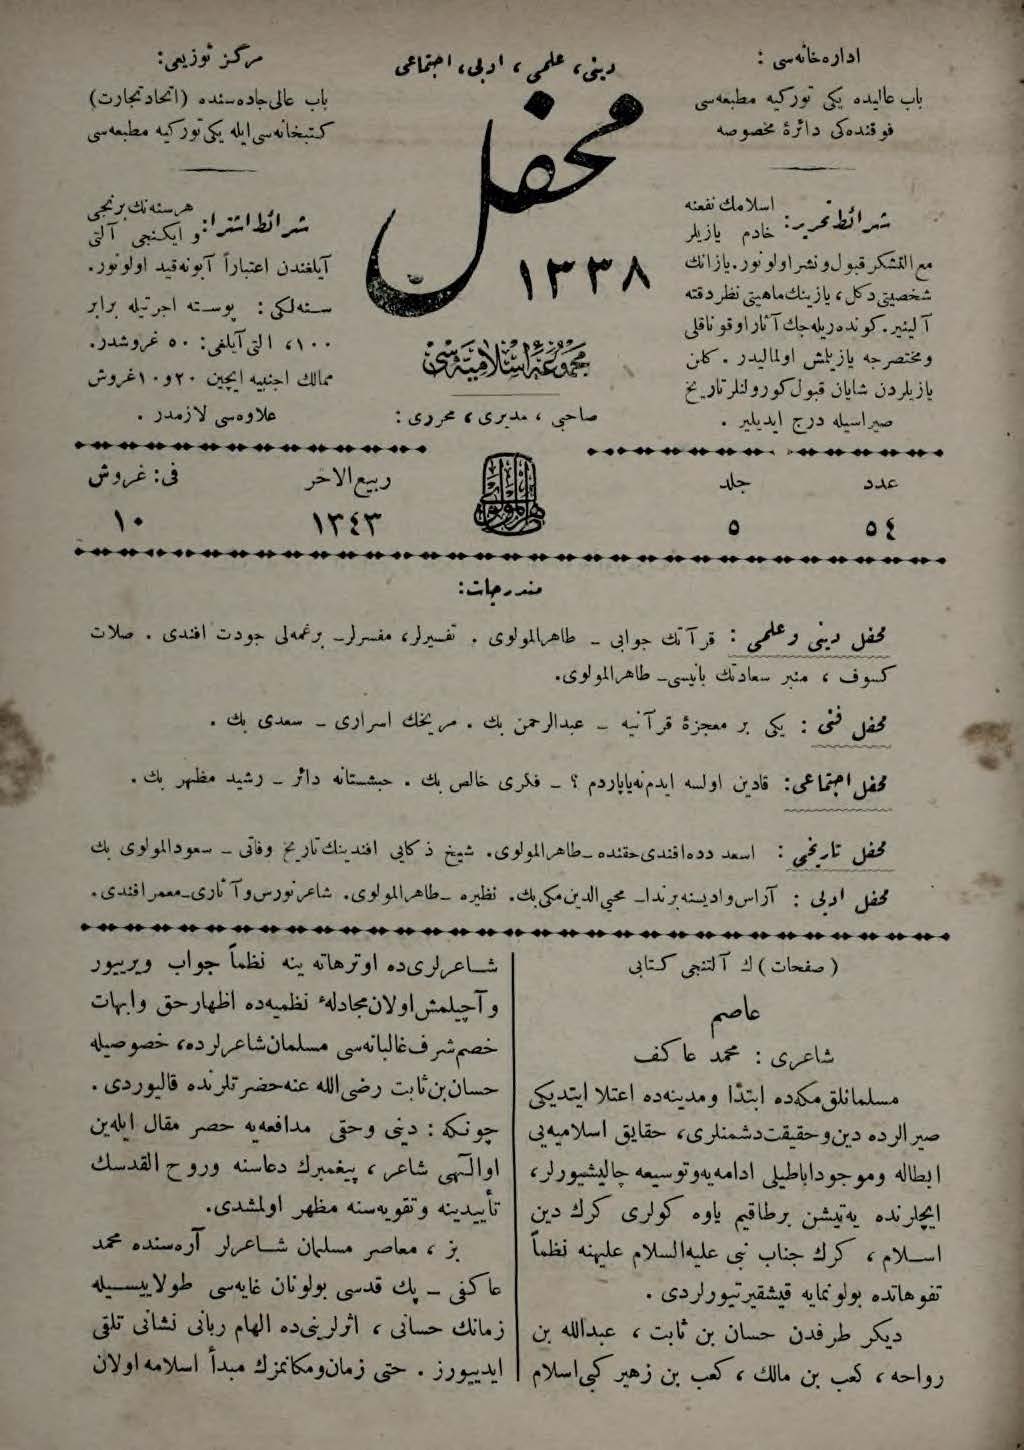 دینی، علمی، ادبی، اجتماعی
محفل
١٣٣٨
مجموعهٔ اسلامیه‌سی
صاحبی ، مدیری ، محرری :
اداره‌خانه‌سی :
باب عالیده یکی تورکیه مطبعه‌سی
فوقنده‌کی دائرهٔ مخصوصه
شرائط تحریر: اسلامك نفعنه
خادم یازیلر
مع التشکر قبول و نشر اولونور. یازانك
شخصیتی دکل، یازینك ماهیتی نظر دقته
آلینیر. کوندەریله‌جك آثار اوقوناقلی
ومختصرجه یازیلمش اولمالیدر . کلن
یازیلردن شایان قبول کورولنلر تاریخ
صیراسیله درج ایدیلیر .
مرکز توزیعی:
باب عالی جاده‌سنده (اتحاد تجارت)
کتبخانه‌سی ایله یکی تورکیه مطبعه‌سی
شرائط اشترا: هرسنه‌نك برنجی
و ایکنجی آلتی
آیلغندن اعتباراً آبونه‌قید اولونور.
سنه‌لکی : پوسته اجرتیله برابر
١٠٠، التی آیلغی: ٥٠ غروشدر.
ممالك اجنبیه ایچین ٢٠و١٠غروش
علاوه‌سی لازمدر .
عدد
٥٤
جلد
٥
طاهرالمولوی
ربیع‌الاخر
١٣٤٣
فی: غروش
١٠
مندرجات:
محفل دینی وعلمی : قرآنك جوابی ــ طاهرالمولوی . تفسیرلر، مفسرلر ــ برغمه‌لی جودت افندی . صلات
کسوف ، منبر سعادتك بانیسی ــ طاهرالمولوی.
محفل فنی : یکی بر معجزهٔ قرآنیه ــ عبدالرحمن بك . مریخك اسراری ــ سعدی بك .
محفل اجتماعی: قادین اولسه ایدم‌نه‌یاپاردم ؟ ــ فکری خالص بك . حبشستانه دائر ــ رشید مظهر بك .
محفل تاریخی : اسعد دده‌افندی‌حقنده ــ طاهرالمولوی. شیخ ذکایی افندینك‌تاریخ وفاتی ــ سعودالمولوی بك
محفل ادبی : آراس‌وادیسنه‌برندا ــ محیی‌الدین مکی بك. نظیره ــ طاهرالمولوی. شاعر نورس‌وآثاری ــ معمرافندی.
(صفحات) ك آلتنجی کتابی
عاصم
شاعری : محمد عاکف
مسلمانلق‌مکه‌ده ابتدا ومدینه‌ده اعتلا ایتدیکی
صیرالرده دین‌وحقیقت‌دشمنلری، حقایق اسلامیه‌یی
ابطاله وموجوداباطیلی ادامه‌یه‌وتوسیعه چالیشیورلر،
ایچلرنده یەتیشن برطاقیم یاوه کولری کرك دین
اسلام ، کرك جناب نبی علیه‌السلام علیهنه نظماً
تفوهاتده بولونمایه قیشقیرتیورلردی .
دیکر طرفدن حسان بن ثابت ، عبدالله بن
رواحه ، کعب بن مالك ، کعب بن زهیر کبی‌اسلام
شاعرلری‌ده اوترهاته ینه نظماً جواب ویرییور
وآچیلمش‌اولان‌مجادلهٔ نظمیه‌ده اظهارحق وابهات
خصم‌شرف‌غالبانه‌سی مسلمان‌شاعرلرده، خصوصیله
حسان‌بن‌ثابت رضی‌الله عنه‌حضرتلرنده قالیوردی .
چونکه : دینی وحقی مدافعه‌یه حصر مقال ایله‌ین
اوالٓهی شاعر ، پیغمبرك دعاسنه وروح القدسك
تأییدینه وتقویه‌سنه مظهر اولمشدی.
بز ، معاصر مسلمان شاعرلر آره‌سنده محمد
عاکفی ــ پك قدسی بولونان غایه‌سی طولاییسیله
زمانك حسانی ، اثرلرینی‌ده الهام ربانی نشانی تلقی
ایدییورز . حتی زمان‌ومکانمزك مبدأ اسلامه اولان